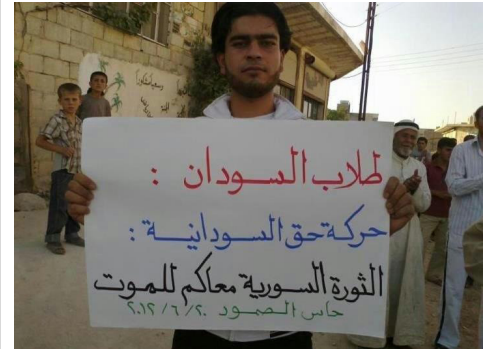 طلاب السودان :
حركة حق السودانية :
الثورة السورية معاكم للموت
حاس الصمود ٢٠/ ٦/ ٢٠١٢